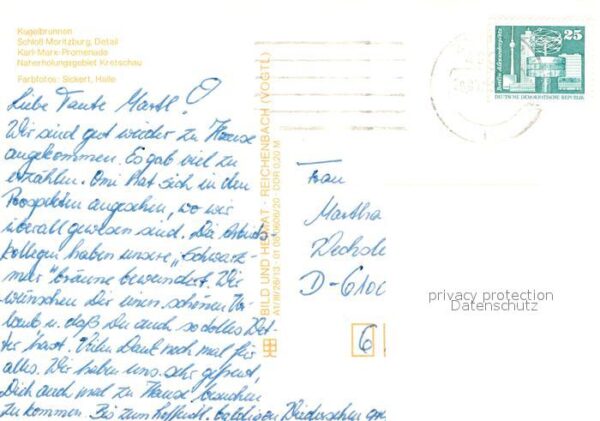 Kugelbrunnen
Schloß Moritzburg, Detail
Karl-Marx-Promenade
Naherholungsgebiet Kretschau
Farbfotos: Sickert, Halle
Liebe Tante Martl!
Wir sind gut wieder zu Hause
angekommen. Es gab viel zu
erzählen. Omi hat sich in den
Prospekten angesehen, wo wir
überall gewesen sind. Die Arbeits-
kollegen haben unsere „Schwarz-
meer"bräune bewundert. Wir
wünschen Dir einen schönen Ur-
laub u. daß Du auch so tolles Wet-
ter hast. Vielen Dank noch mal für
alles. Wir haben uns sehr gefreut,
Dich auch mal zu Hause besuchen
zu kommen. Bis zum hoffentl. baldigen Wiedersehen
BILD UND HEIMAT · REICHENBACH (VOGTL)
A1/III/26/13 01 06 0606/20 DDR 0,20 M
25
Berlin, Alexanderplatz
DEUTSCHE DEMOKRATISCHE REPUBLIK
Frau
Martha
D-6100
6
privacy protection
Datenschutz